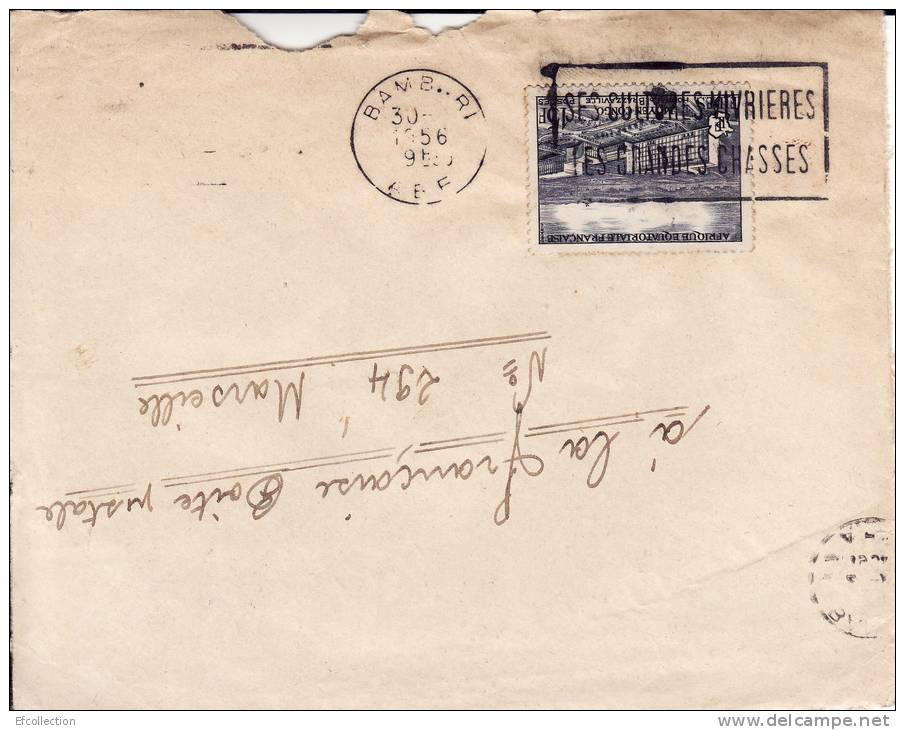 BAMB..RI
30-
1956
A E F
SES CULTURES VIVRIERES
SES GRANDES CHASSES
MOYEN CONGO
BRAZZAVILLE
POSTES
AFRIQUE EQUATORIALE FRANÇAISE
à la Française Boite postale
No 294 Marseille
Efcollection
www.delcampe.net